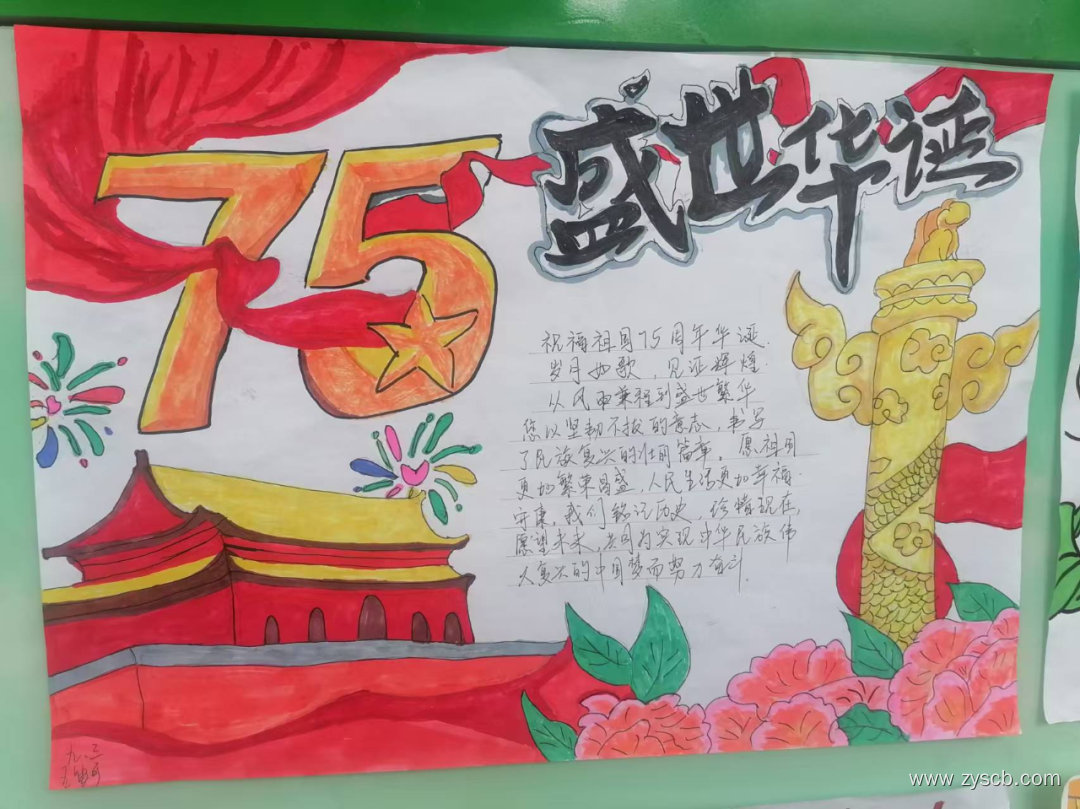 75
盛世华诞
祝福祖国75周年华诞.
岁月如歌，见证辉煌.
从风雨兼程到盛世繁华
您以坚韧不拔的意志，书写
了民族复兴的壮丽篇章。愿祖国
更加繁荣昌盛，人民生活更加幸福
安康，我们铭记历史，珍惜现在，
愿望未来，共同为实现中华民族伟
大复兴的中国梦而努力奋斗.
九、三
www.zyscb.com